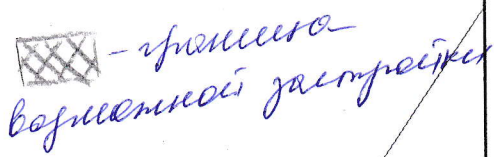 – граница
возможной застройки